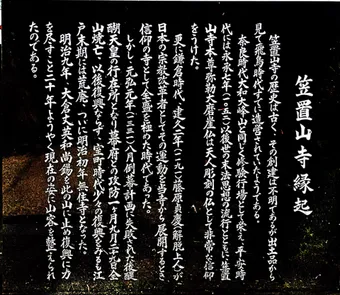 笠置山寺縁起
笠置山寺の歴史は古く、その創建は不明であるが出土品から
見て飛鳥時代すでに造営されていたようである。
奈良時代大和大峯山と同じく修験行場として栄え、平安時
代には永承七年(一〇五二)以後世の末法思想の流行とともに、笠置
山寺本尊弥勒大磨崖仏は天人彫刻の仏として非常な信仰
をうけた。
更に鎌倉時代、建久二年(一一九一)藤原貞慶(解脱上人)が
日本の宗教改革者としてその運動を当寺から展開するとき
信仰の寺として全盛を極めた時代であった。
しかし、元弘元年(一三三一)八月倒幕計画に失敗した後醍
醐天皇の行在所となり幕府との攻防一ヶ月九月二十九日全
山焼亡、以後復興ならず、室町時代少々の復興をみるも江
戸末期には荒廃、ついに明治初年無住寺となった。
明治九年、大倉丈英和尚錫を此の山に止め復興に力
を尽すこと二十年ようやく現在の姿に山容を整えられ
たのである。